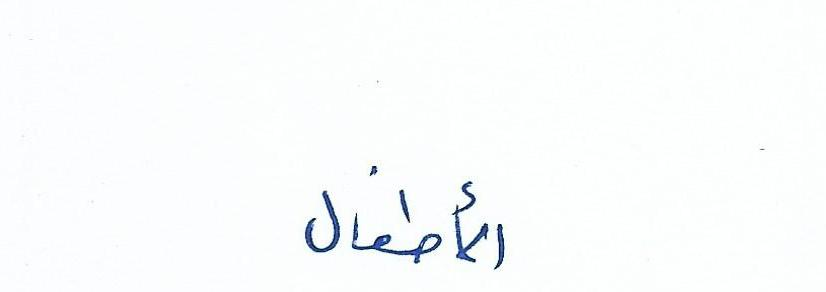 الأطفال